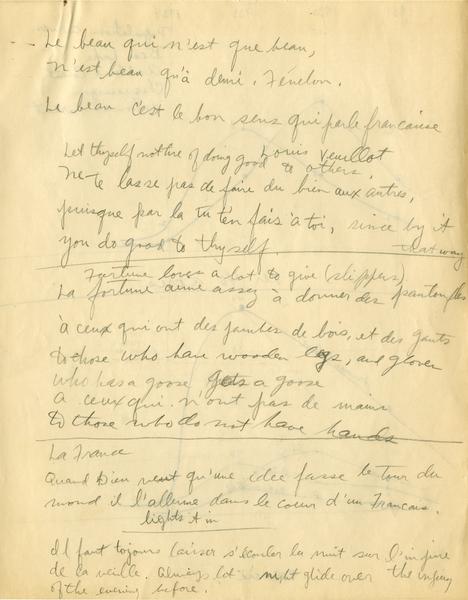 Le beau qui n'est que beau,
n'est beau qu'à demi. Fénelon.
Le beau c'est le bon sens qui parle francaise
Louis Veuillot
Let thyself not tire of doing good to others,
Ne te lasse pas de faire du bien aux autres,
puisque par la tu t'en fais à toi, since by it
you do good to thyself. that way
Fortune loves a lot to give (slippers)
La fortune aime assez à donner des pantoufles
à ceux qui ont des jambes de bois, et des gants
to those who have wooden legs, and gloves
who has a goose gets a goose
à ceux qui n'ont pas de mains
to those who do not have hands
La France
Quand Dieu veut qu'une idée fasse le tour du
mond il l'allume dans le coeur d'un Francais.
lights it in
Il faut tojours laisser s'écouler la nuit sur l'injure
de la veille. Always let night glide over the injury
of the evening before.